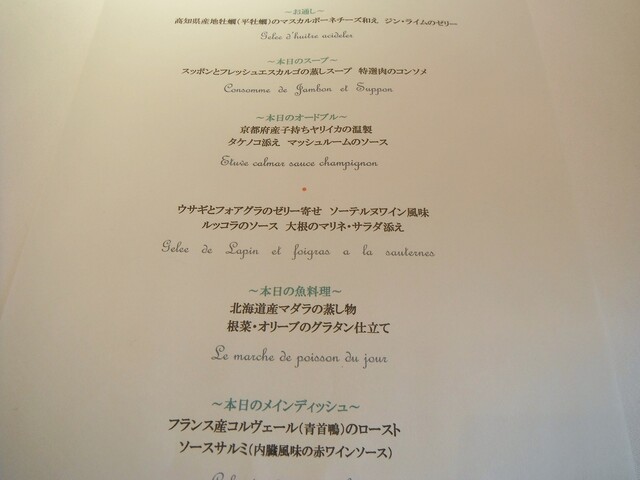 ～お通し～
高知県産地牡蠣(平牡蠣)のマスカルポーネチーズ和え ジン・ライムのゼリー
Gelee d'huitre acideler
～本日のスープ～
スッポンとフレッシュエスカルゴの蒸しスープ 特選肉のコンソメ
Consomme de Jambon et Suppon
～本日のオードブル～
京都府産子持ちヤリイカの温製
タケノコ添え マッシュルームのソース
Etuve calmar sauce champignon
ウサギとフォアグラのゼリー寄せ ソーテルヌワイン風味
ルッコラのソース 大根のマリネ・サラダ添え
Gelee de Lapin et foigras a la sauternes
～本日の魚料理～
北海道産マダラの蒸し物
根菜・オリーブのグラタン仕立て
Le marche de poisson du jour
～本日のメインディッシュ～
フランス産コルヴェール(青首鴨)のロースト
ソースサルミ(内臓風味の赤ワインソース)